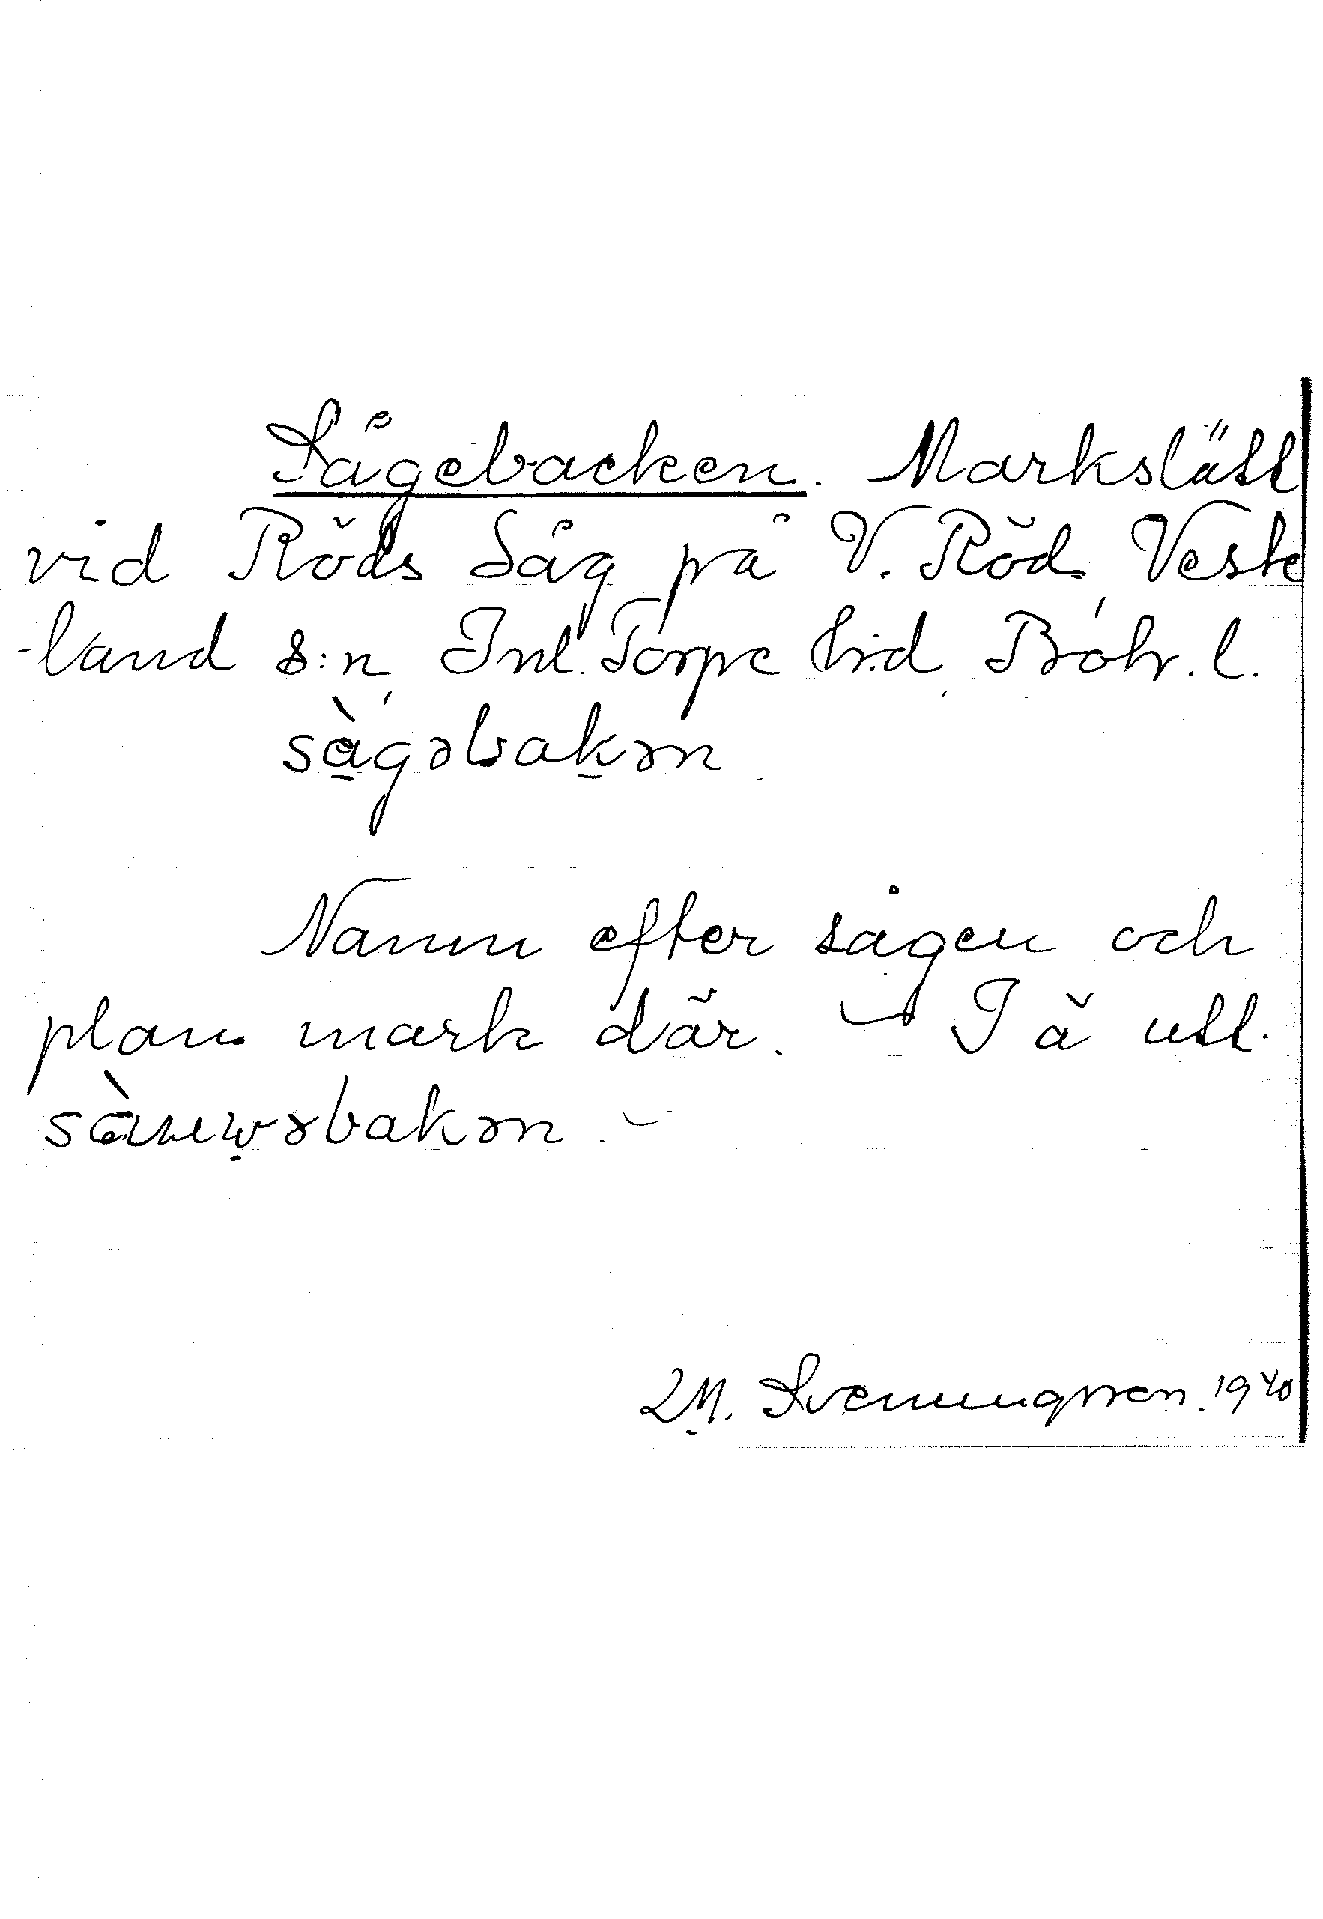 Sågebacken. Markslätt
vid Röds Såg på V. Röd, Veste
-land s:n, Inl. Torpe h:d, Boh. l.
sàgəbakən
Namn efter sågen och
plan mark där. – I ä utt.
bakən. –
M. Svenungsson. 1940